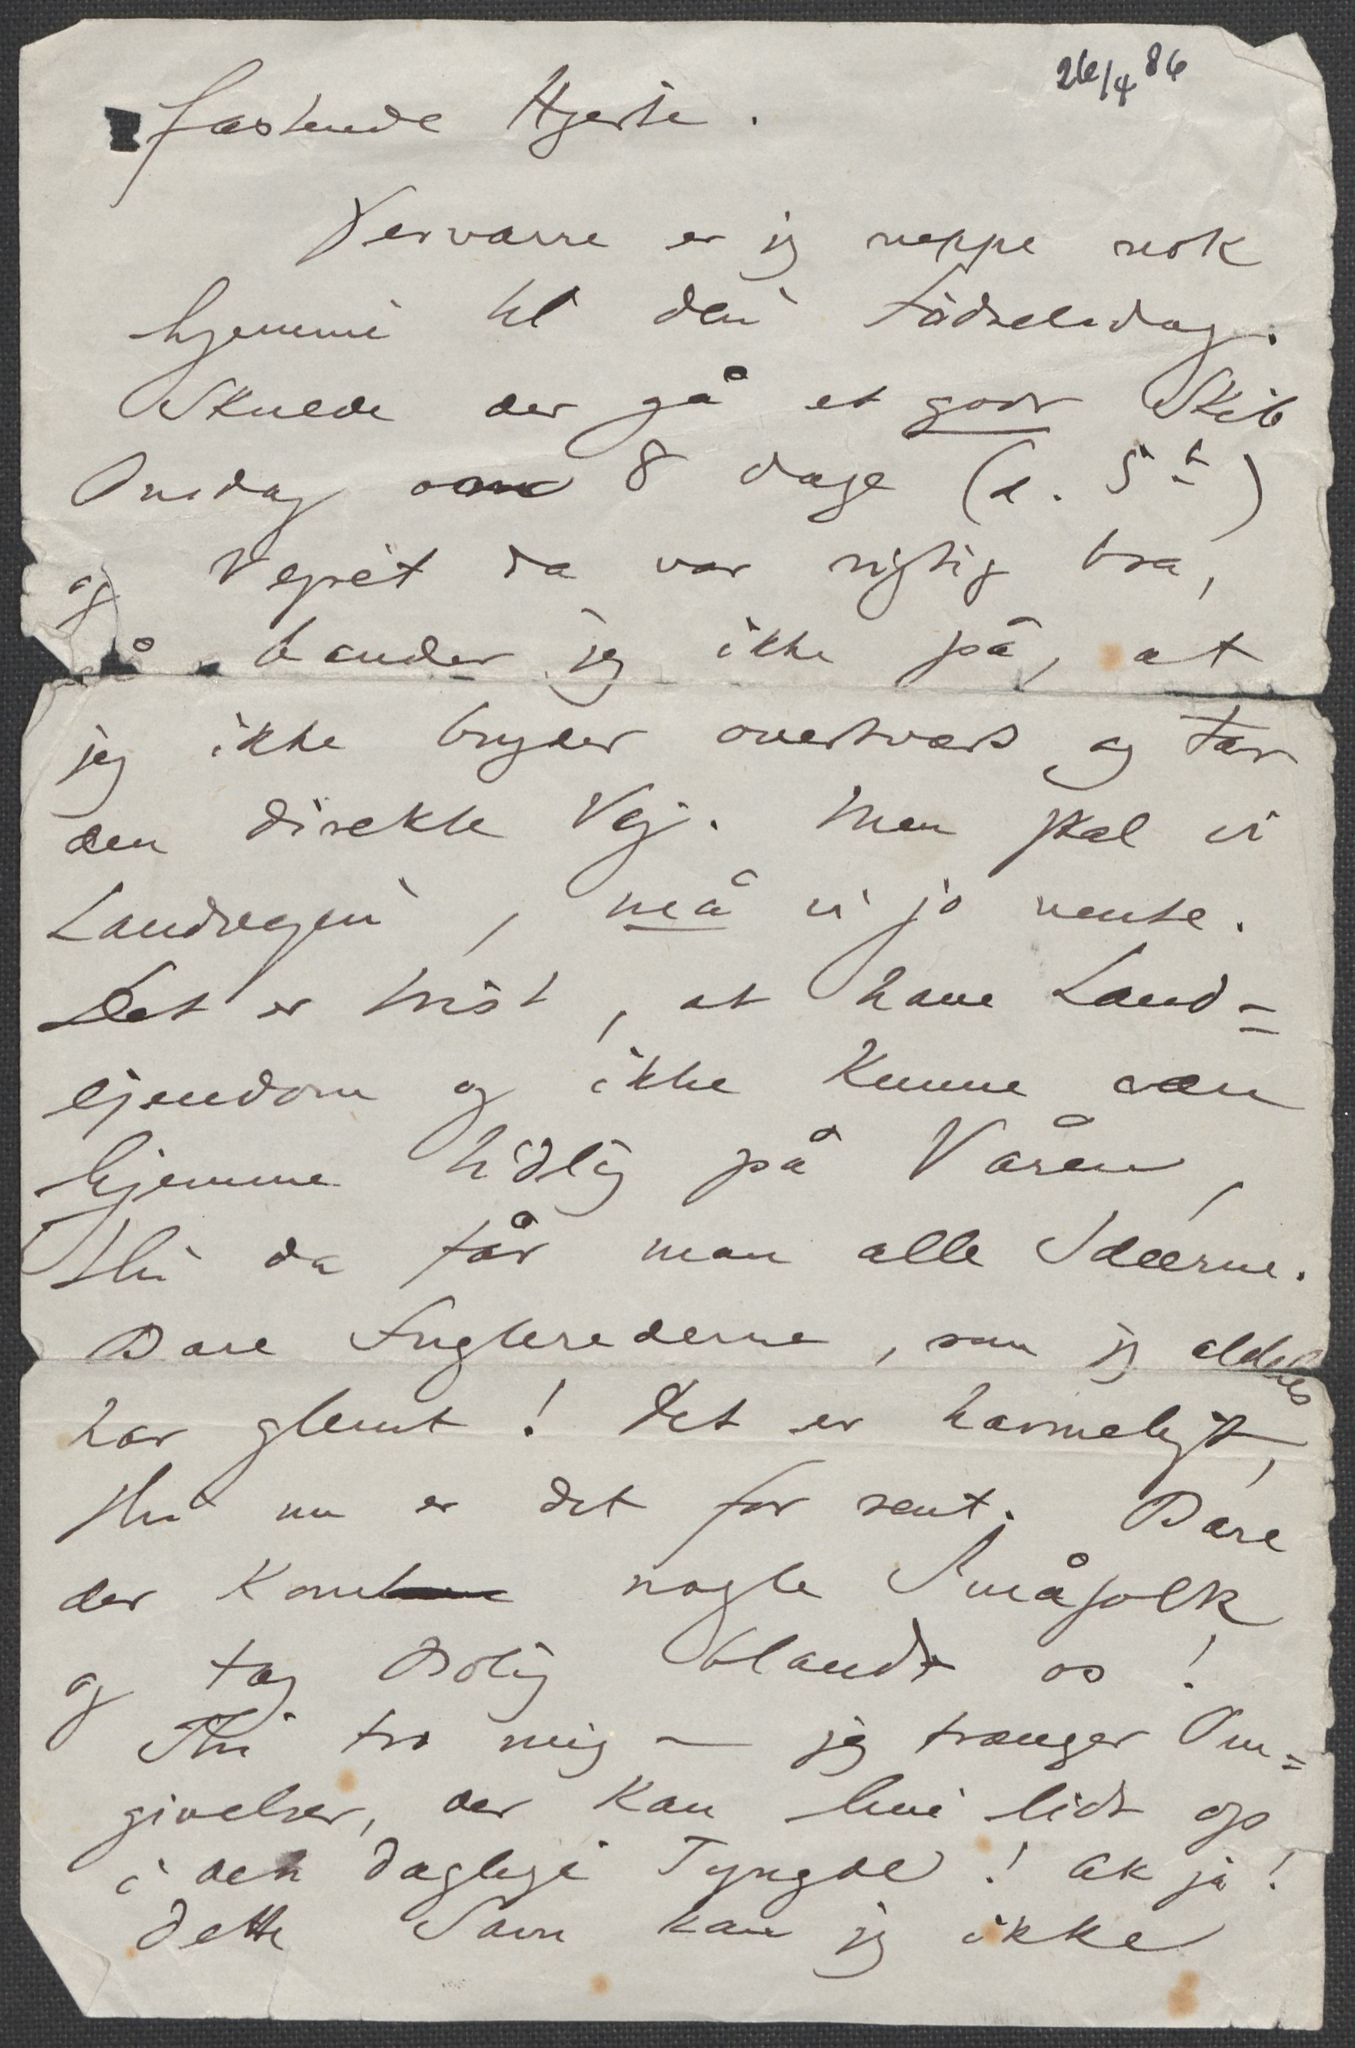 26/4 86
fastende Hjerte.
Desværre er jeg neppe nok
hjemme til din Fødselsdag.
Skulde der gå et godt Skib
Onsdag om 8 dage (d. 5t)
og Vejret da var rigtig bra,
så bander jeg ikke på, at
jeg ikke bryder overtværs og tar
den direkte Vej. Men skal vi
Landvejen, må vi jo vente.
Det er trist, at have Land=
ejendom og ikke kunne være
hjemme tidlig på Våren,
thi da får man alle Idéerne.
Bare Fuglerederne, som jeg aldeles
har glemt! Det er harmeligt,
thi nu er det for sent. Bare
der kom nogle Småfolk
og tog Bolig blandt os!
Thi tro mig — jeg trænger Om=
givelser, der kan live lidt op
i den daglige Tyngde! Ak ja!
dette Savn kan jeg ikke